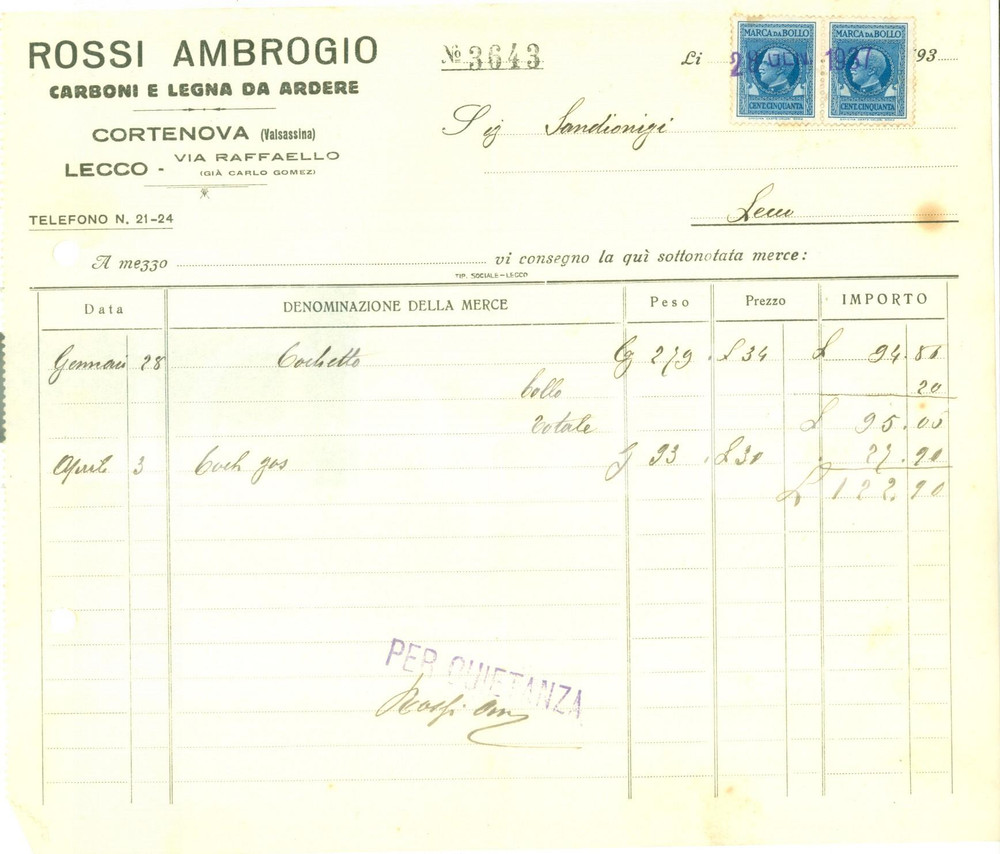 ROSSI AMBROGIO
CARBONI E LEGNA DA ARDERE
CORTENOVA (Valsassina)
LECCO - VIA RAFFAELLO
(GIÀ CARLO GOMEZ)
TELEFONO N. 21-24
No 3643
Li 193
MARCA DA BOLLO MARCA DA BOLLO
GEN. 1937
CENT. CINQUANTA CENT. CINQUANTA
Sig Sandionigi
Lecco
A mezzo vi consegno la quì sottonotata merce:
TIP. SOCIALE-LECCO
Data DENOMINAZIONE DELLA MERCE Peso Prezzo IMPORTO
Gennaio 28 Cochetto Cg 279 . £ 34 £ 94.80
bollo 20
Totale £ 95.00
Aprile 3 Coch gas 93 . £ 30 27.90
£ 122.90
PER QUIETANZA
Rossi Am